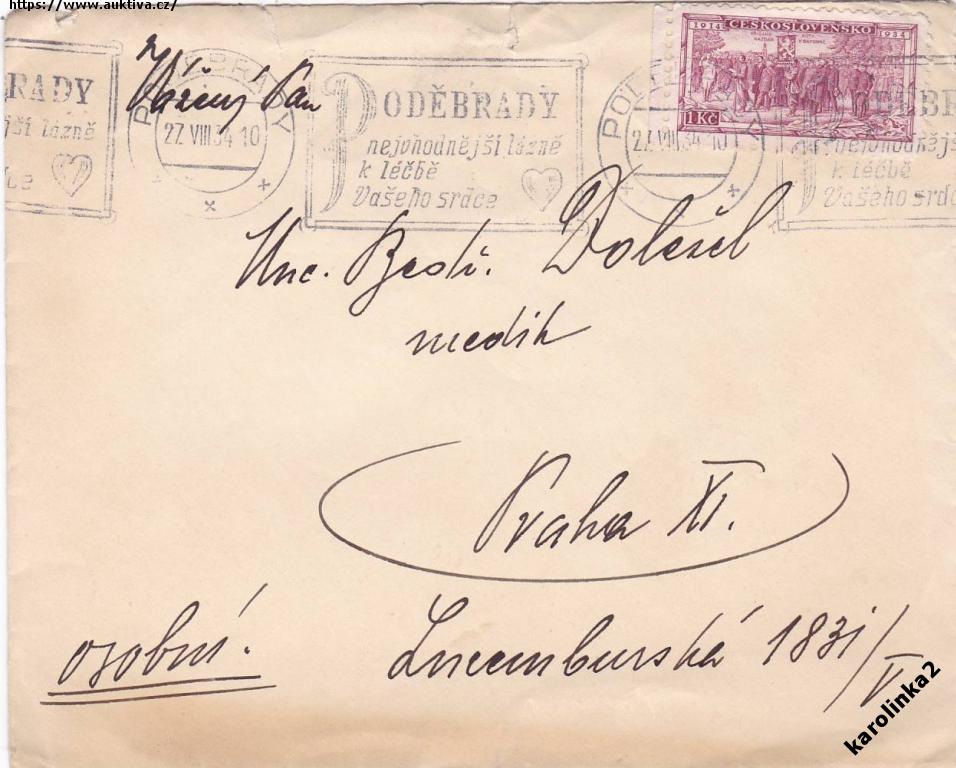 https://www.auktiva.cz/
Vážený Pan
BRADY
jší lázně
ce
PODĚBRADY
27 VIII 34 10
PODĚBRADY
nejvhodnější lázně
k léčbě
Vašeho srdce
27 VIII 34 10
1914 ČESKOSLOVENSKO 1934
1 Kč
nejvhodnějš
k léčbě
Vašeho srdc
Doležel
medik
Praha XI.
osobní.
Lucemburská 1831/V
karolinka2